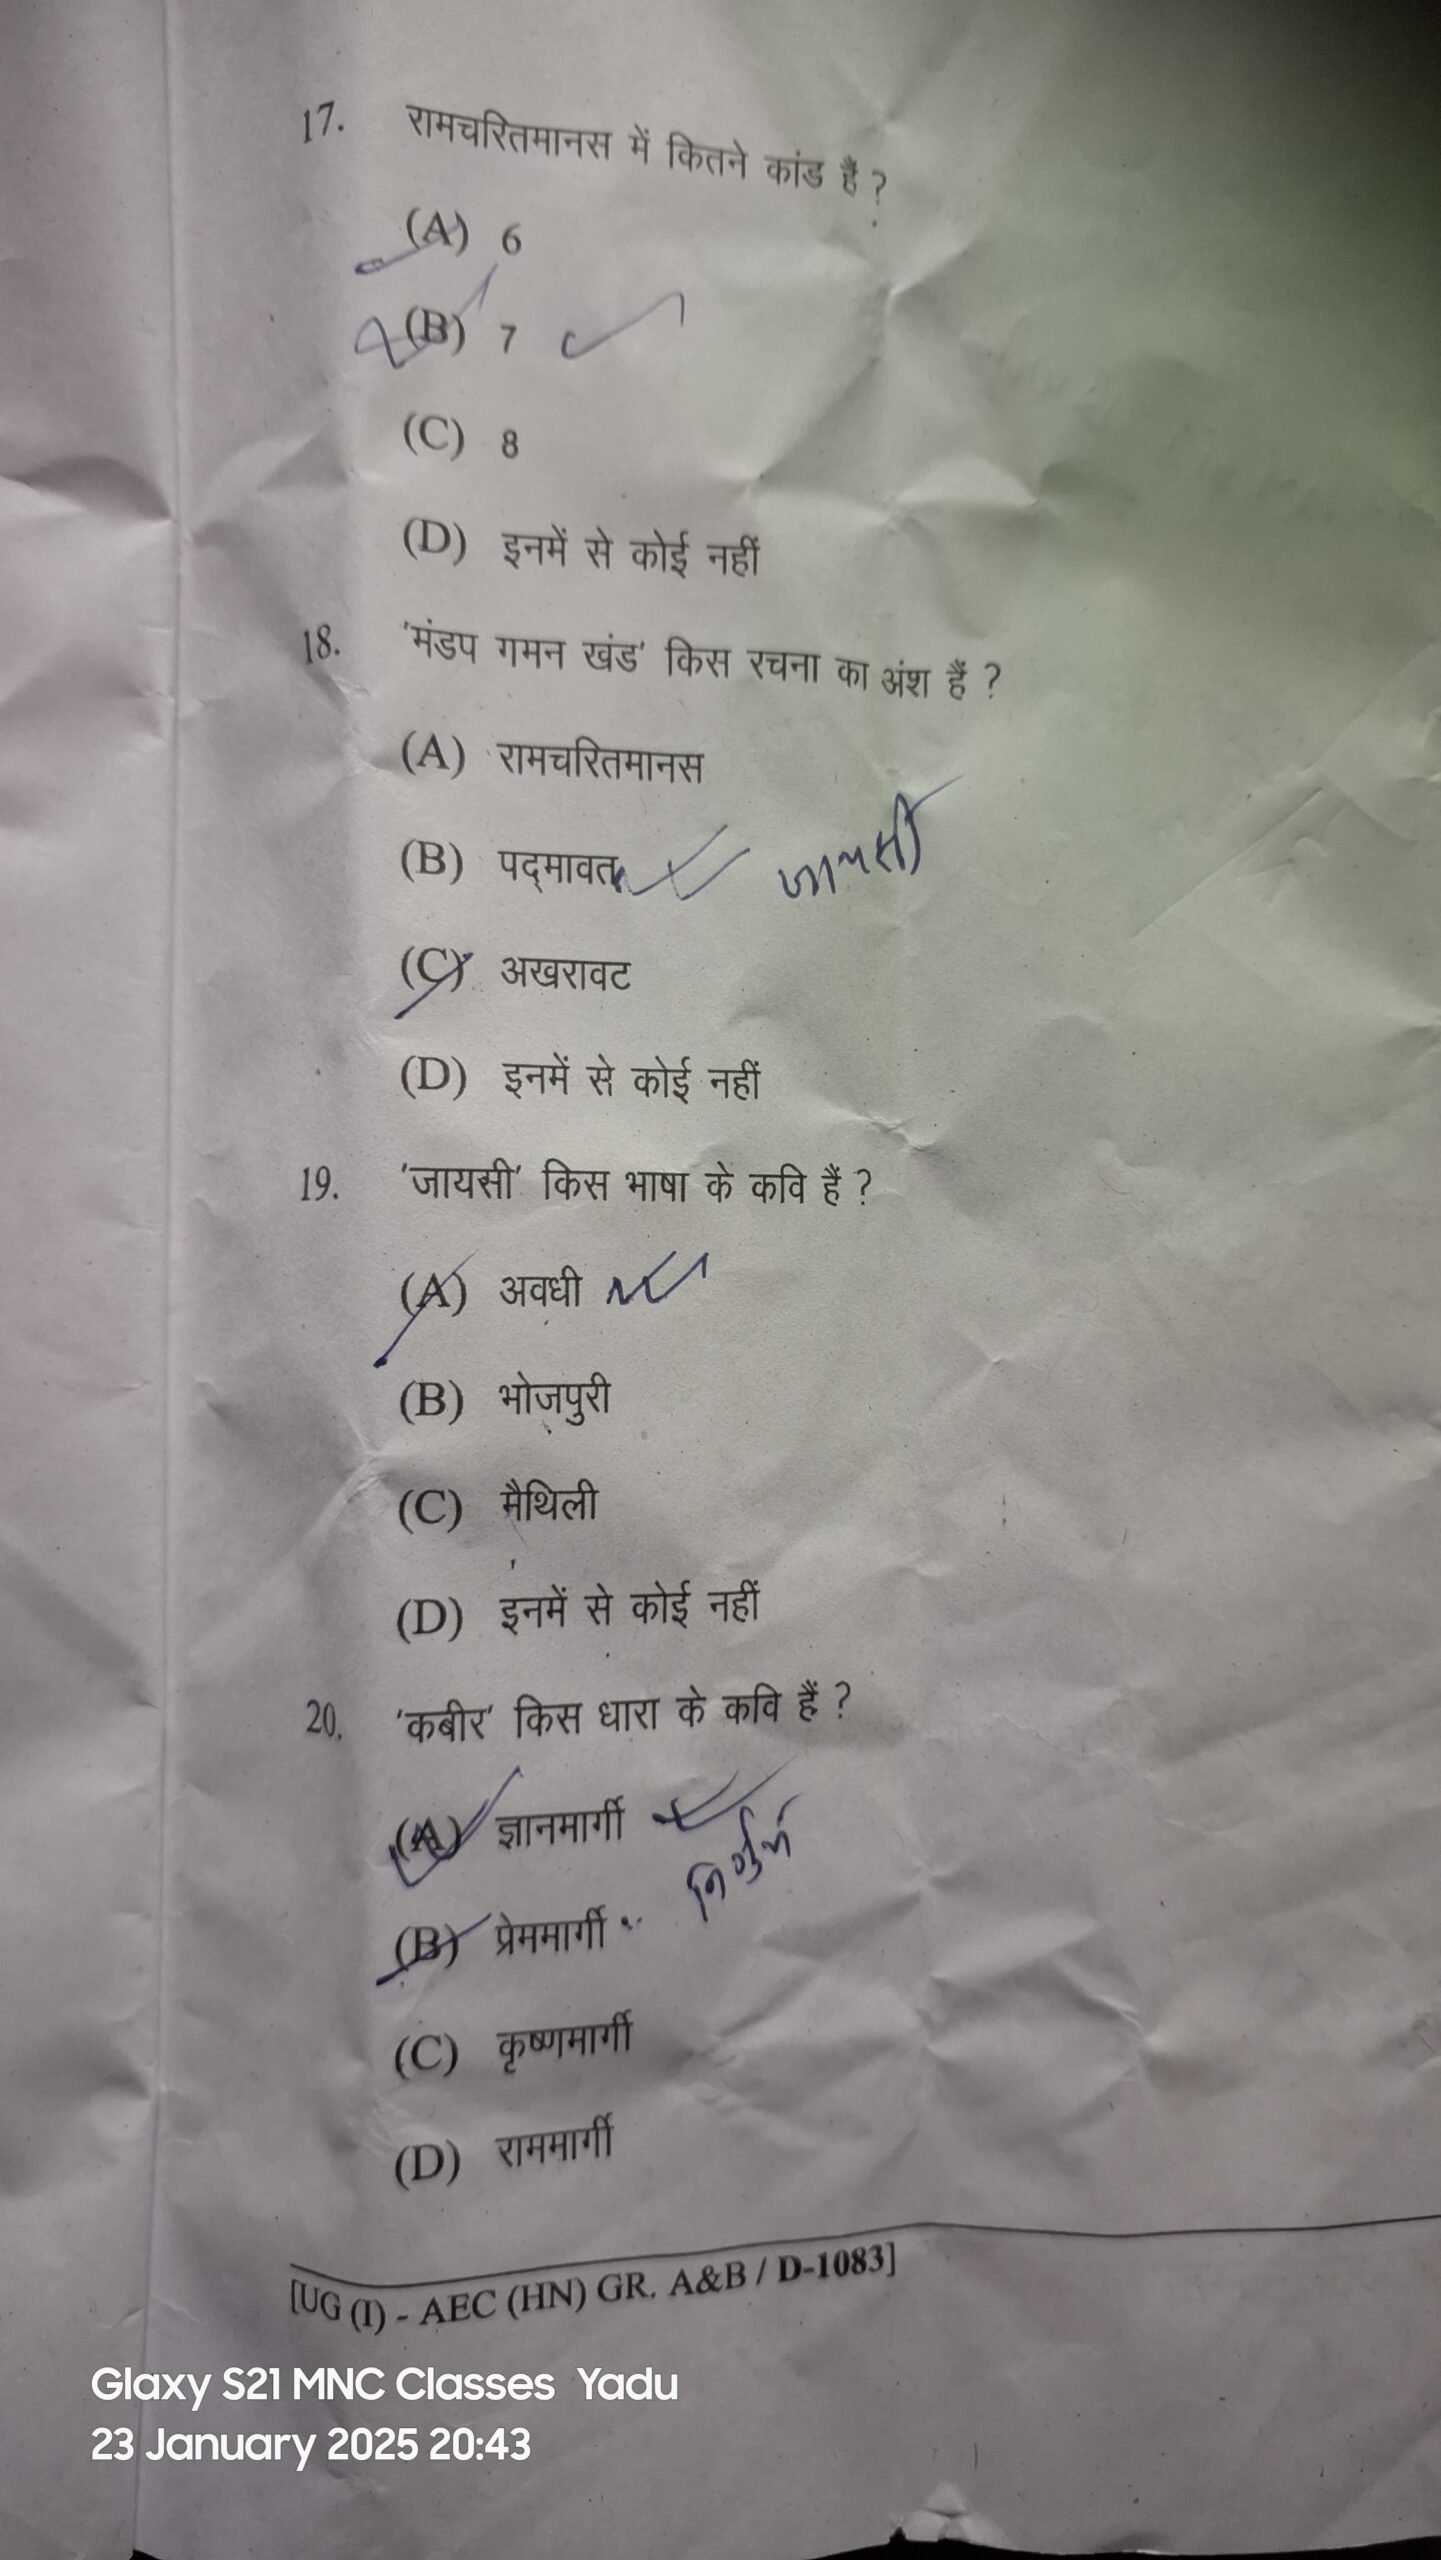 17. रामचरितमानस में कितने कांड हैं ?
(A) 6
(B) 7
(C) 8
(D) इनमें से कोई नहीं
18. 'मंडप गमन खंड' किस रचना का अंश हैं ?
(A) रामचरितमानस
(B) पद्मावत जायसी
(C) अखरावट
(D) इनमें से कोई नहीं
19. 'जायसी' किस भाषा के कवि हैं ?
(A) अवधी
(B) भोजपुरी
(C) मैथिली
(D) इनमें से कोई नहीं
20. 'कबीर' किस धारा के कवि हैं ?
(A) ज्ञानमार्गी
निर्गुण
(B) प्रेममार्गी
(C) कृष्णमार्गी
(D) राममार्गी
[UG (I) - AEC (HN) GR. A&B / D-1083]
Glaxy S21 MNC Classes Yadu
23 January 2025 20:43